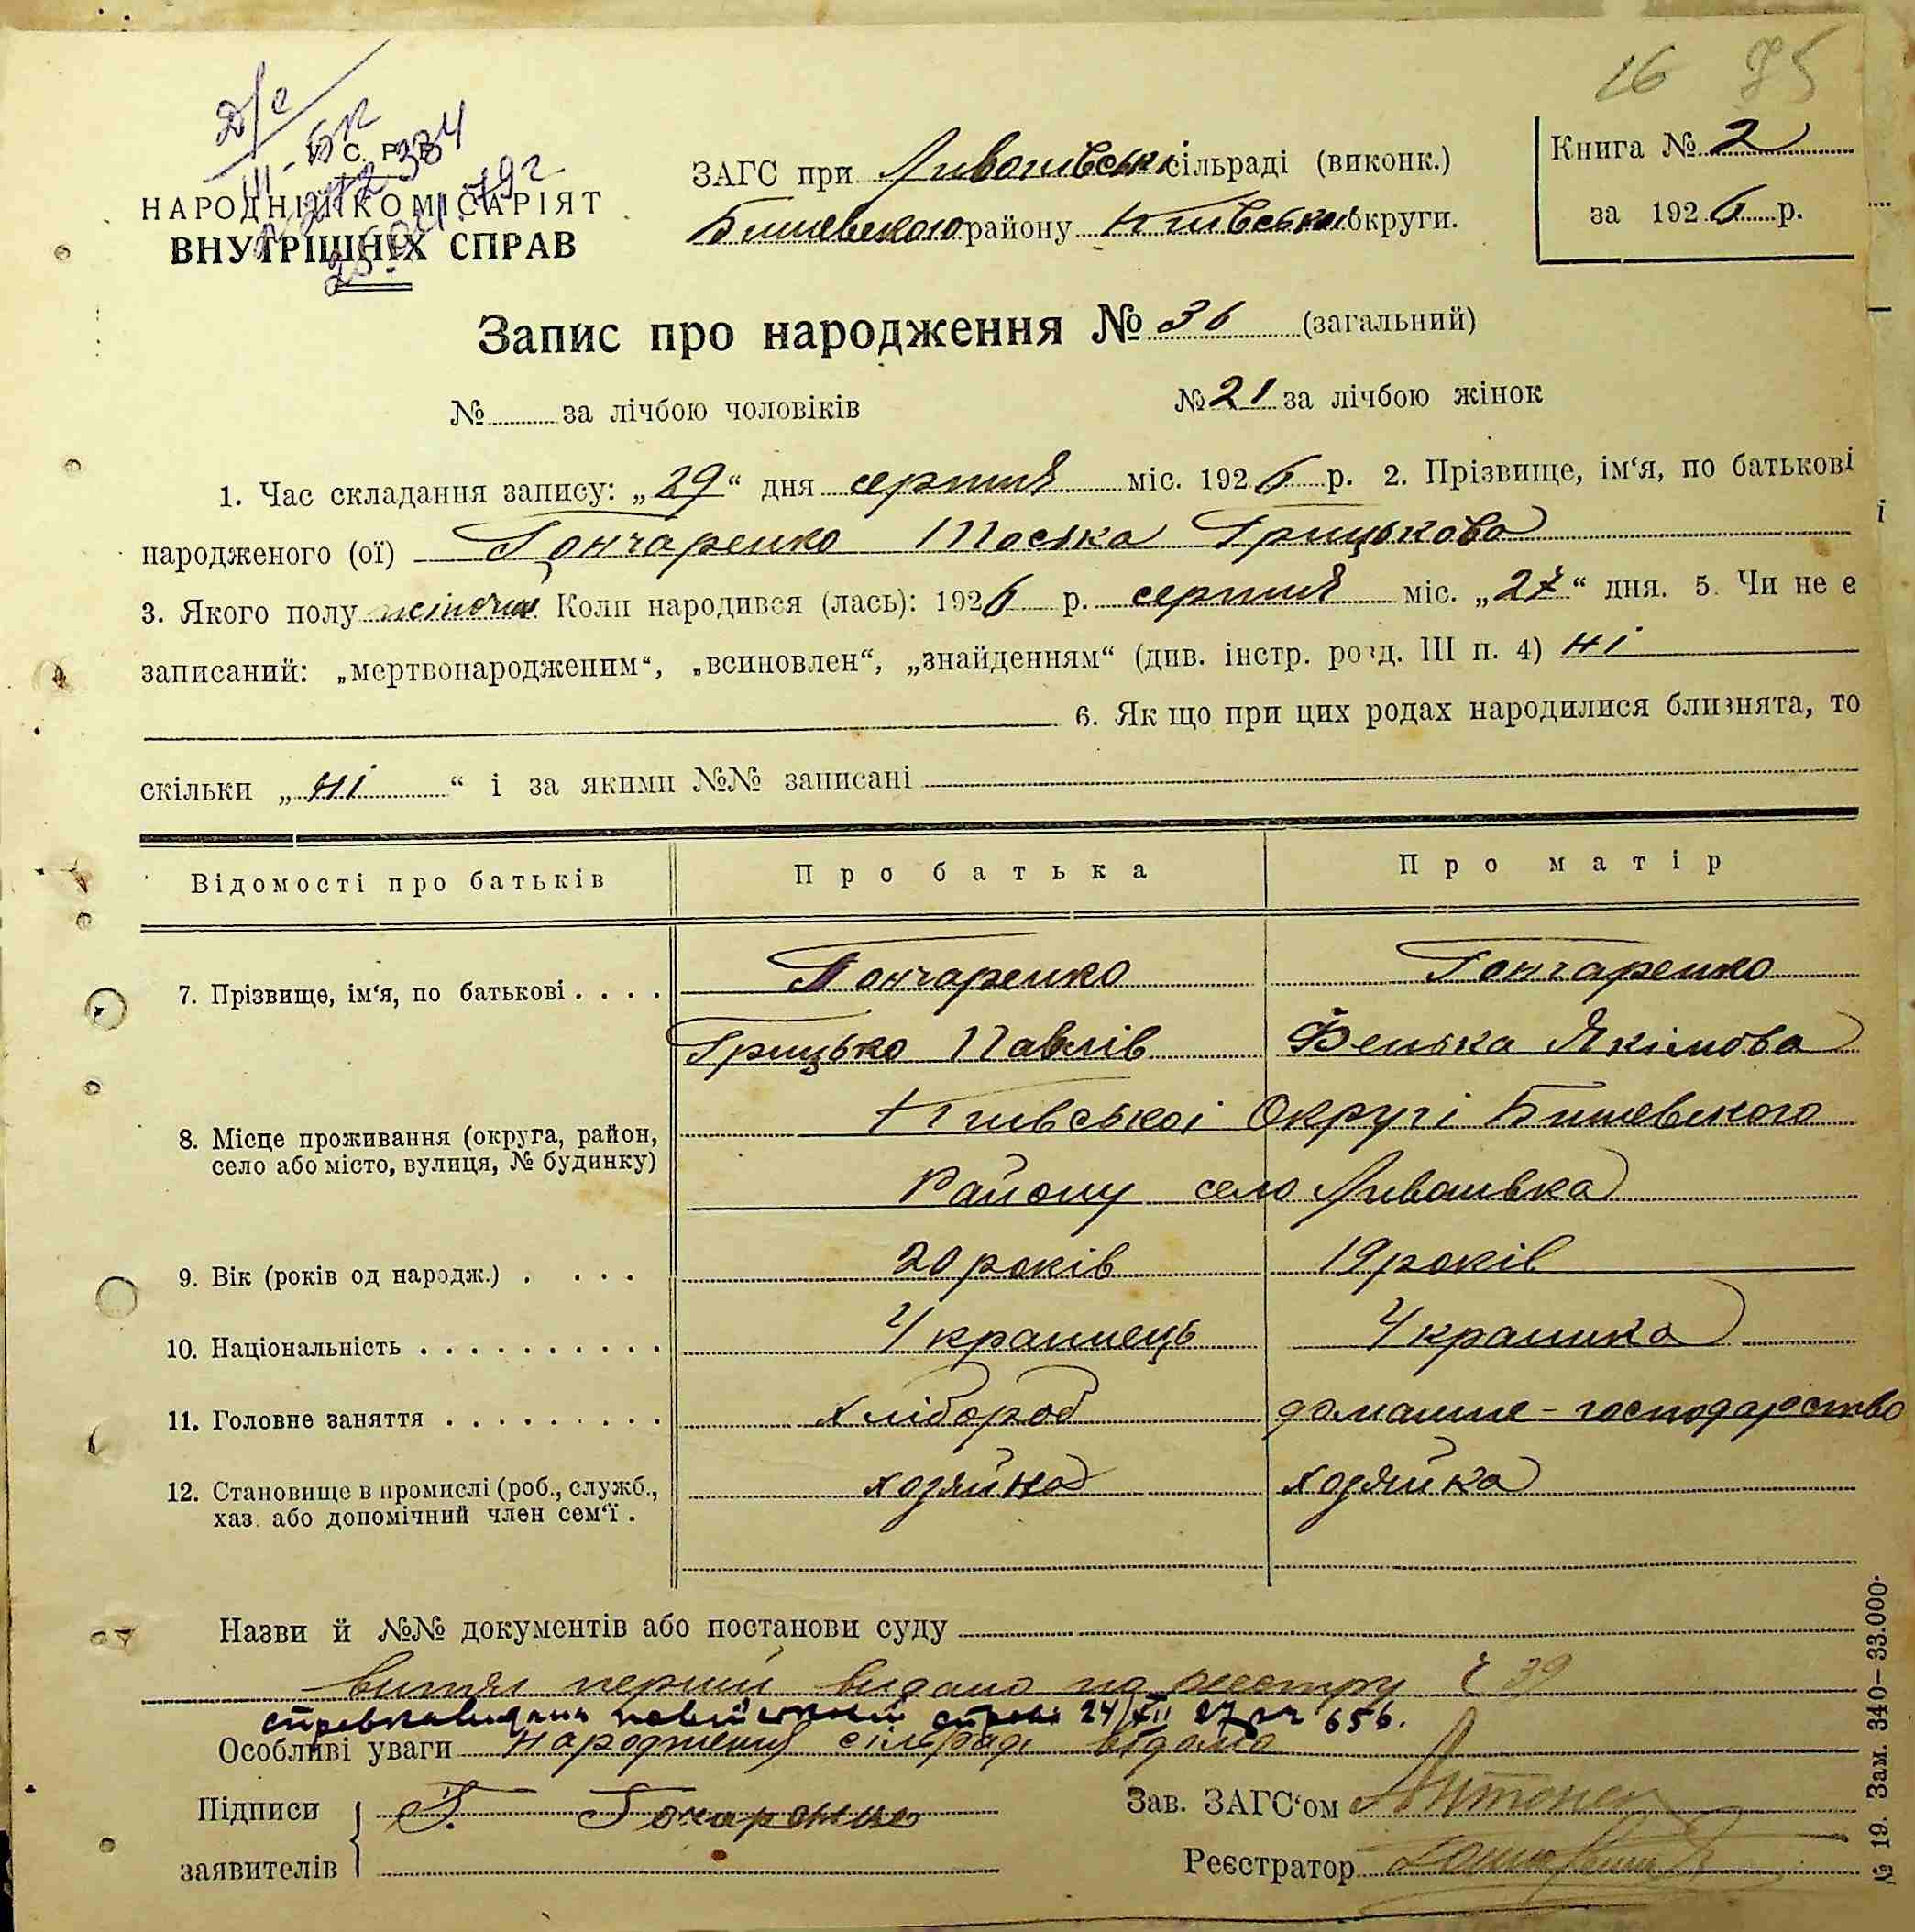 16 85
У. С. Р. Р.
НАРОДНІЙ КОМІСАРІЯТ
ВНУТРІШНІХ СПРАВ
ЗАГС при Лишовські сільраді (виконк.)
Бишевського району Київської округи.
Книга № 2
за 1926 р.
Запис про народження № 36 (загальний)
№ за лічбою чоловіків № 21 за лічбою жінок
1. Час складання запису: „29“ дня серпня міс. 1926 р. 2. Прізвище, ім‘я, по батькові
народженого (ої) Гончаренко Тоська Грицькова
3. Якого полу жіноча Коли народився (лась): 1926 р. серпня міс. „27“ дня. 5. Чи не є
записаний: „мертвонародженим“, „всиновлен“, „знайденням“ (див. інстр. розд. III п. 4) ні
6. Якщо при цих родах народилися близнята, то
скільки „ні“ і за якими №№ записані
Відомості про батьків Про батька Про матір
7. Прізвище, ім‘я, по батькові . . . . Гончаренко Гончаренко
Грицько Павлів Фенька Якімова
8. Місце проживання (округа, район, село або місто, вулиця, № будинку) Київськоі Округі Бишевського
Району село
9. Вік (років од народж.) . . . . 20 років 19 років
10. Національність . . . . . . . . . . Украинець Украинка
11. Головне заняття . . . . . . . . . хлібороб домашне-господарство
12. Становище в промислі (роб., служб., хаз. або допомічний член сем‘ї . хозяйна хозяйка
Назви й №№ документів або постанови суду
витяг перший видано по реєстру № 39
24/XII 27 р № 656.
Особливі уваги Народження сільраді відомо
Підписи заявителів Г. Гочаренко
Зав. ЗАГС‘ом
Реєстратор
№ 19. Зам. 340—33.000.